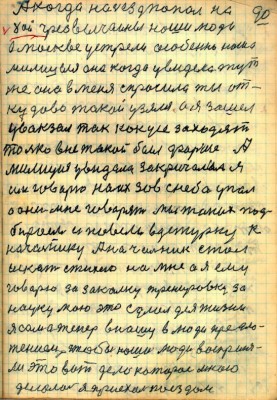 А когда на поезд попал на 90
Чрезвычайны наши люди
в москве устрели особенно наша
милиция она когда увидела тут
же она в меня спросила ты от
куда такой узялся а я зашел
у вакзал так как усе заходят
только в не такой был форме А
милиция увидала закричала я
им говарю наих зов с неба упал
а они мне говарят мы таких под
бираем и повели в детурку к
начатнику А начальник стал
искат на мне а я ему
говарю за закалку тренировку за
науку маю это с для жизни
я сам тепер в нашу в люди
тением чтобы наши люди воспри
ли это вит дела каторае много
делал я приехал поездом